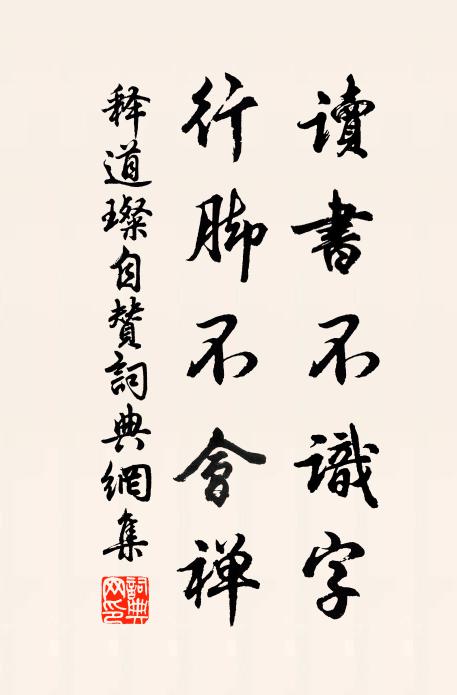 讀書不識字
行脚不會禅
释道璨自赞詞典網集
詞典網印